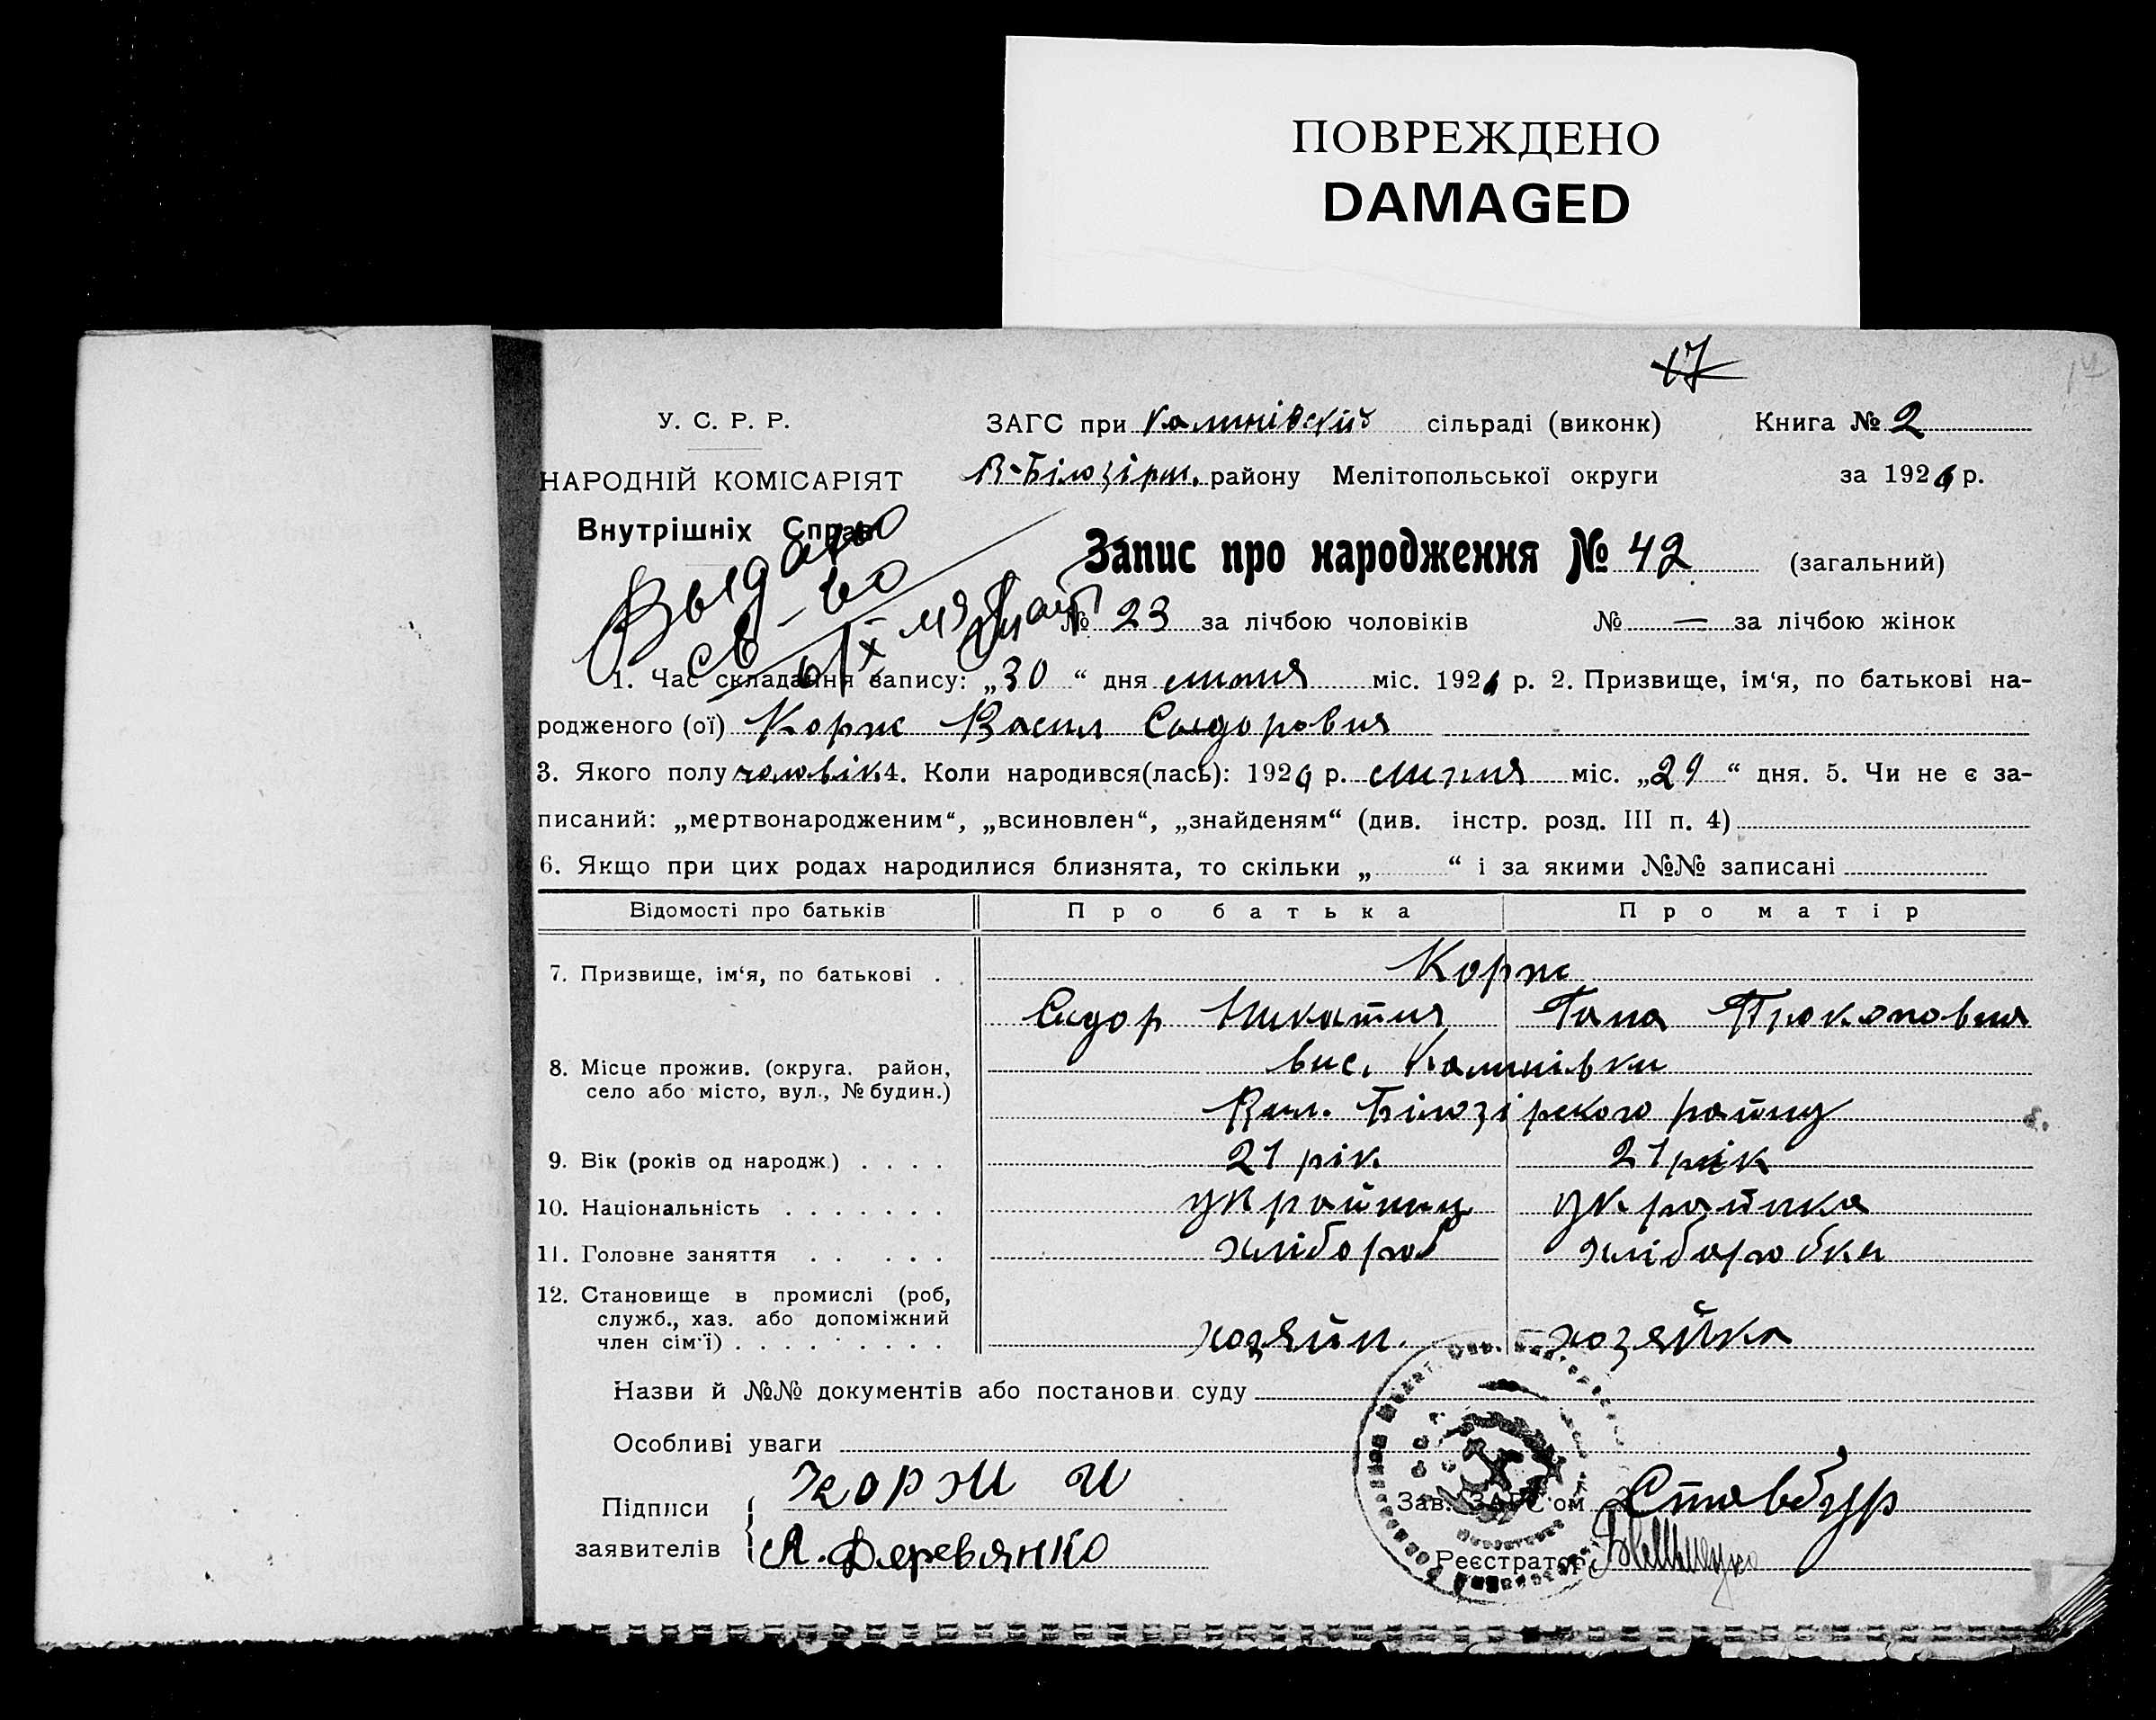 ПОВРЕЖДЕНО
DAMAGED
17
У. С. Р. Р.
НАРОДНІЙ КОМІСАРІЯТ
Внутрішніх Справ
ЗАГС при Калинівській сільраді (виконк) Книга № 2
В-Білозірк. району Мелітопольської округи за 1926 р.
Выдано
св-во
Запис про народження № 42 (загальний)
№ 23 за лічбою чоловіків № — за лічбою жінок
1. Час складання запису: „30“ дня липня міс. 1926 р. 2. Призвище, ім‘я, по батькові на-
родженого (ої) Корж Васил Сидорович
3. Якого полу чоловік. 4. Коли народився(лась): 1926 р. липня міс. „29“ дня. 5. Чи не є за-
писаний: „мертвонародженим“, „всиновлен“, „знайденям“ (див. інстр. розд. III п. 4)
6. Якщо при цих родах народилися близнята, то скільки „ “ і за якими №№ записані
Відомості про батьків Про батька Про матір
7. Призвище, ім‘я, по батькові . Корж
Сидор Гана Прокоповна
8. Місце прожив. (округа. район, село або місто, вул., № будин.) вис. Калинівки
Вел. Білозірского району
9. Вік (років од народж.) . . . . 21 рік. 21 рік
10. Національність . . . . . . . украйинц украйинка
11. Головне заняття . . . . . хлібороб хліборобка
12. Становище в промислі (роб, служб., хаз. або допоміжний член сім‘ї) . . . . . . . . . хозяйн. хозяйка
Назви й №№ документів або постанови суду
Особливі уваги
Підписи заявителів
Корж И
А. Деревянко
Зав. ЗАГС‘ом Стовбур
Реєстратор